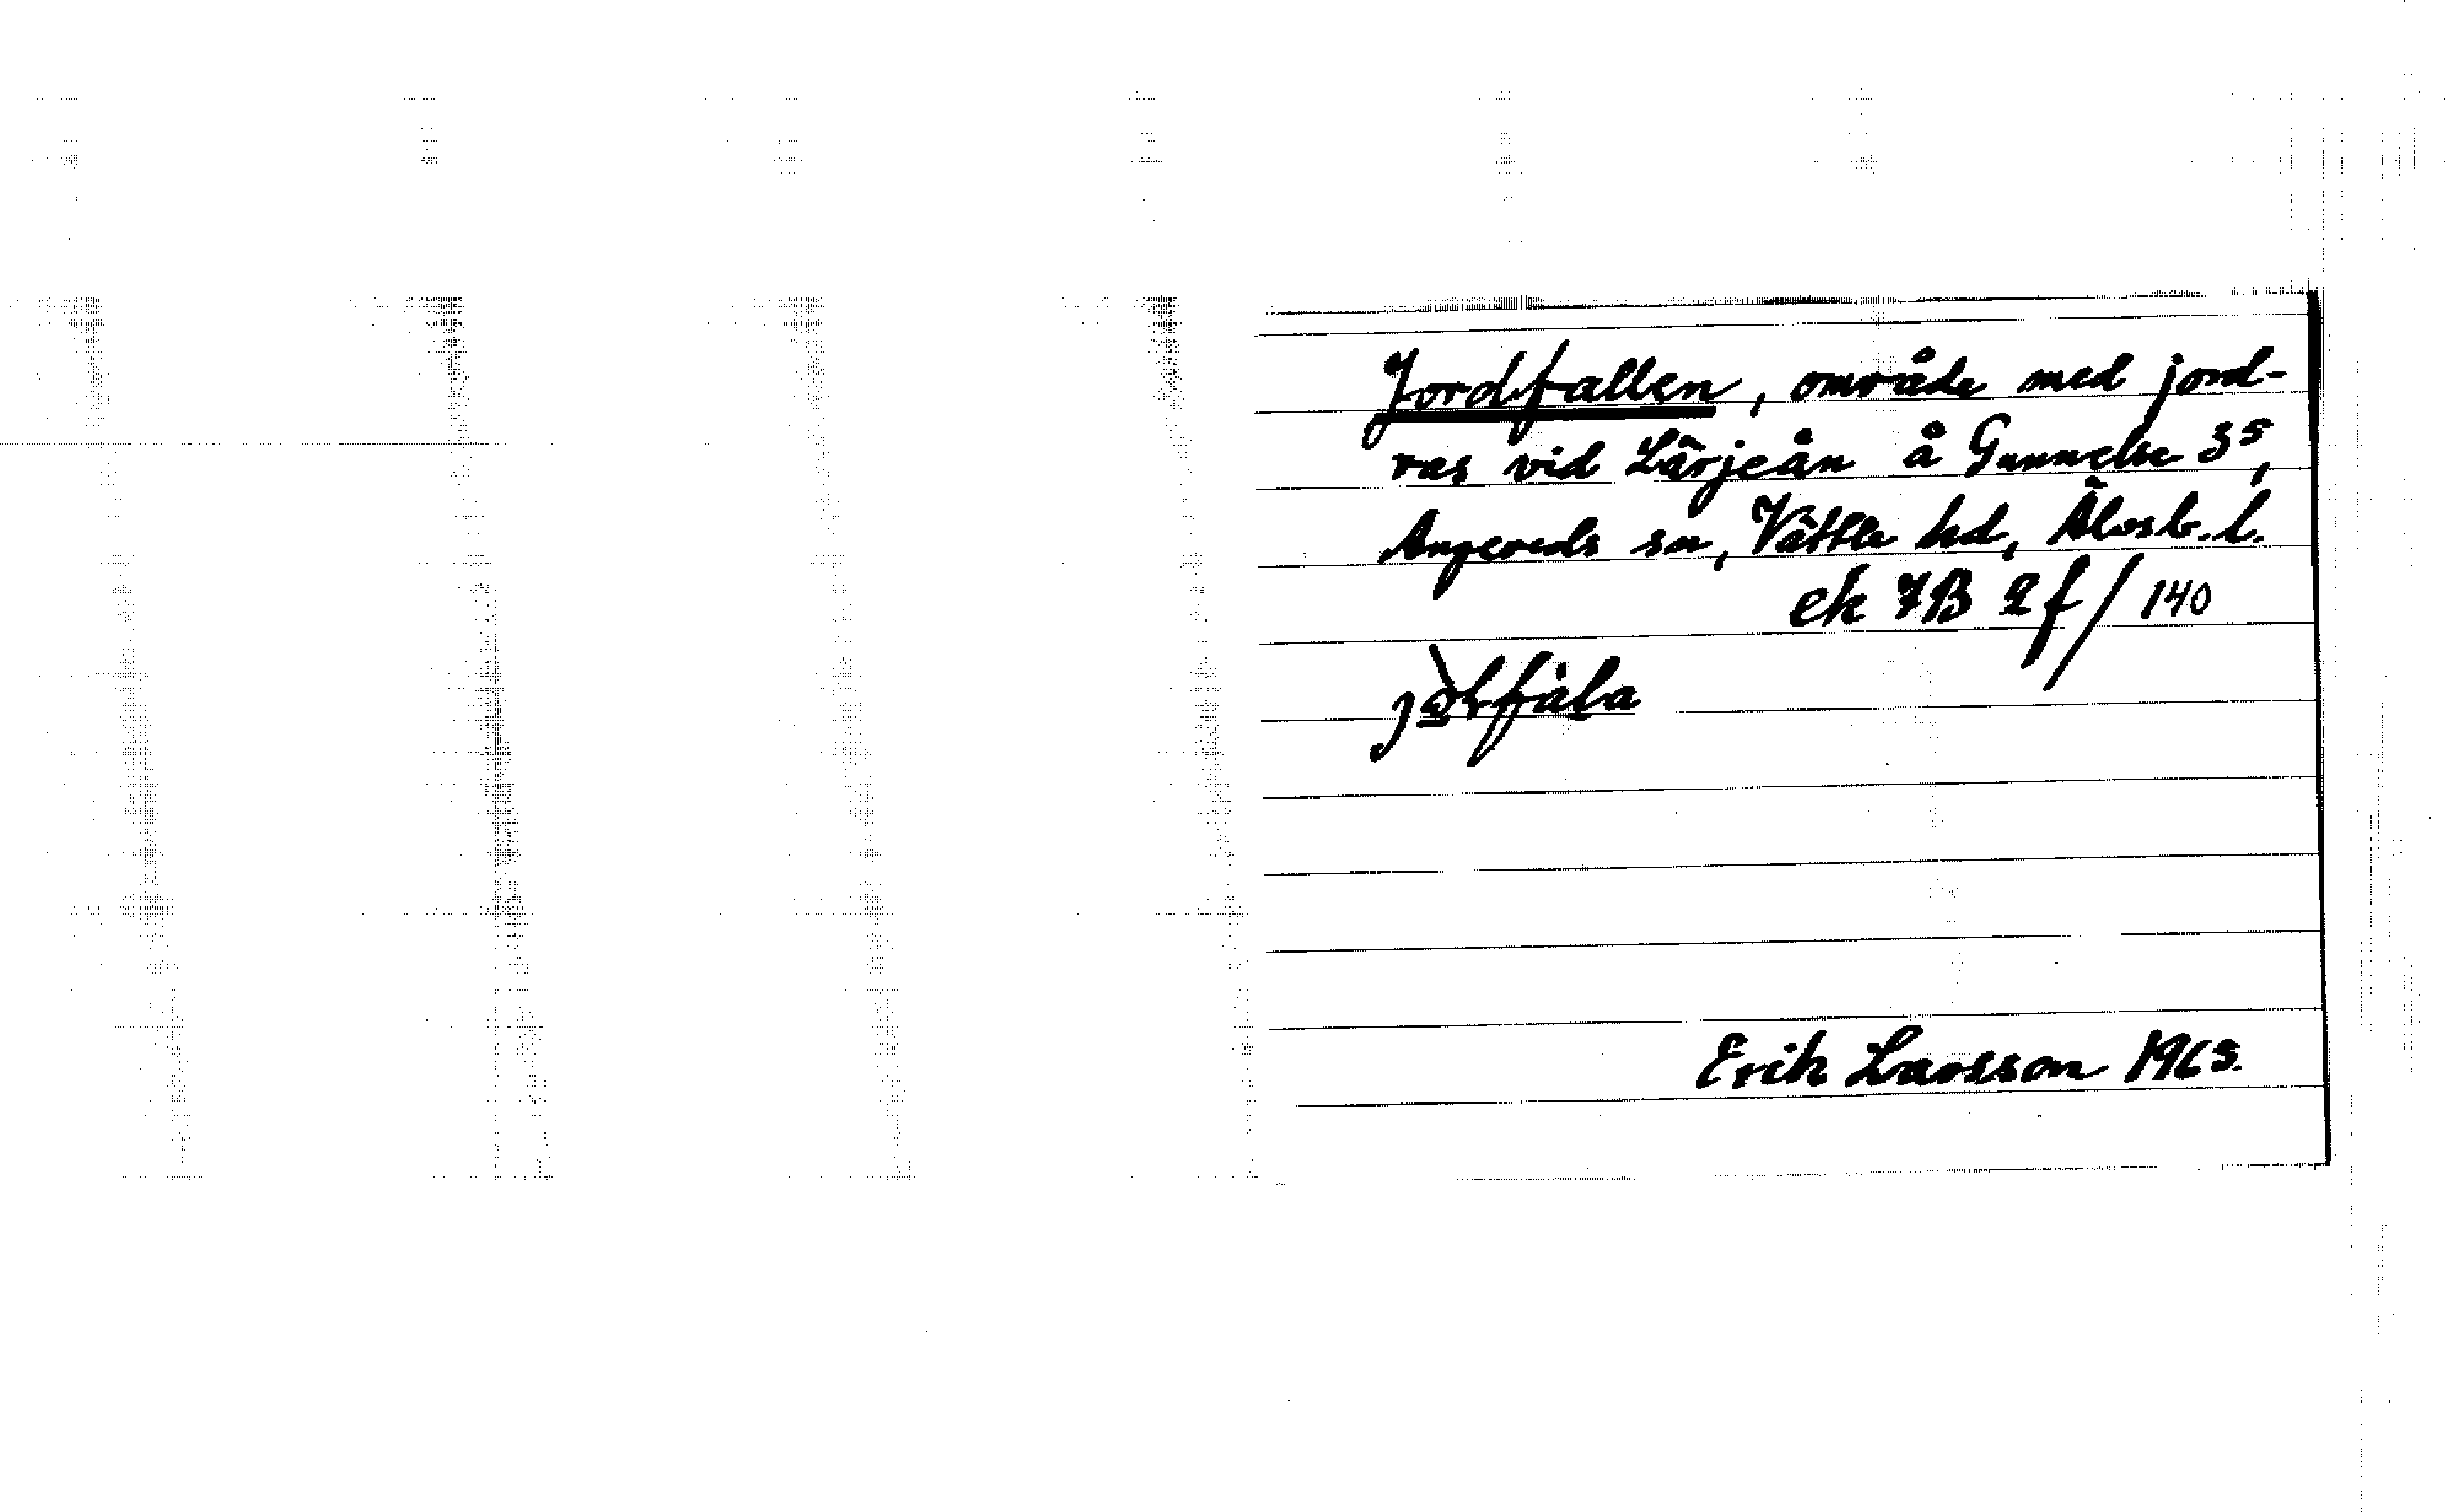 Jordfallen, område med jord-
ras vid Lärjeån å Gunnelse 3⁵,
Angereds sn, Vättle hd, Älvsb. l.
ek 7B 2f/140
Erik Larsson 1965.